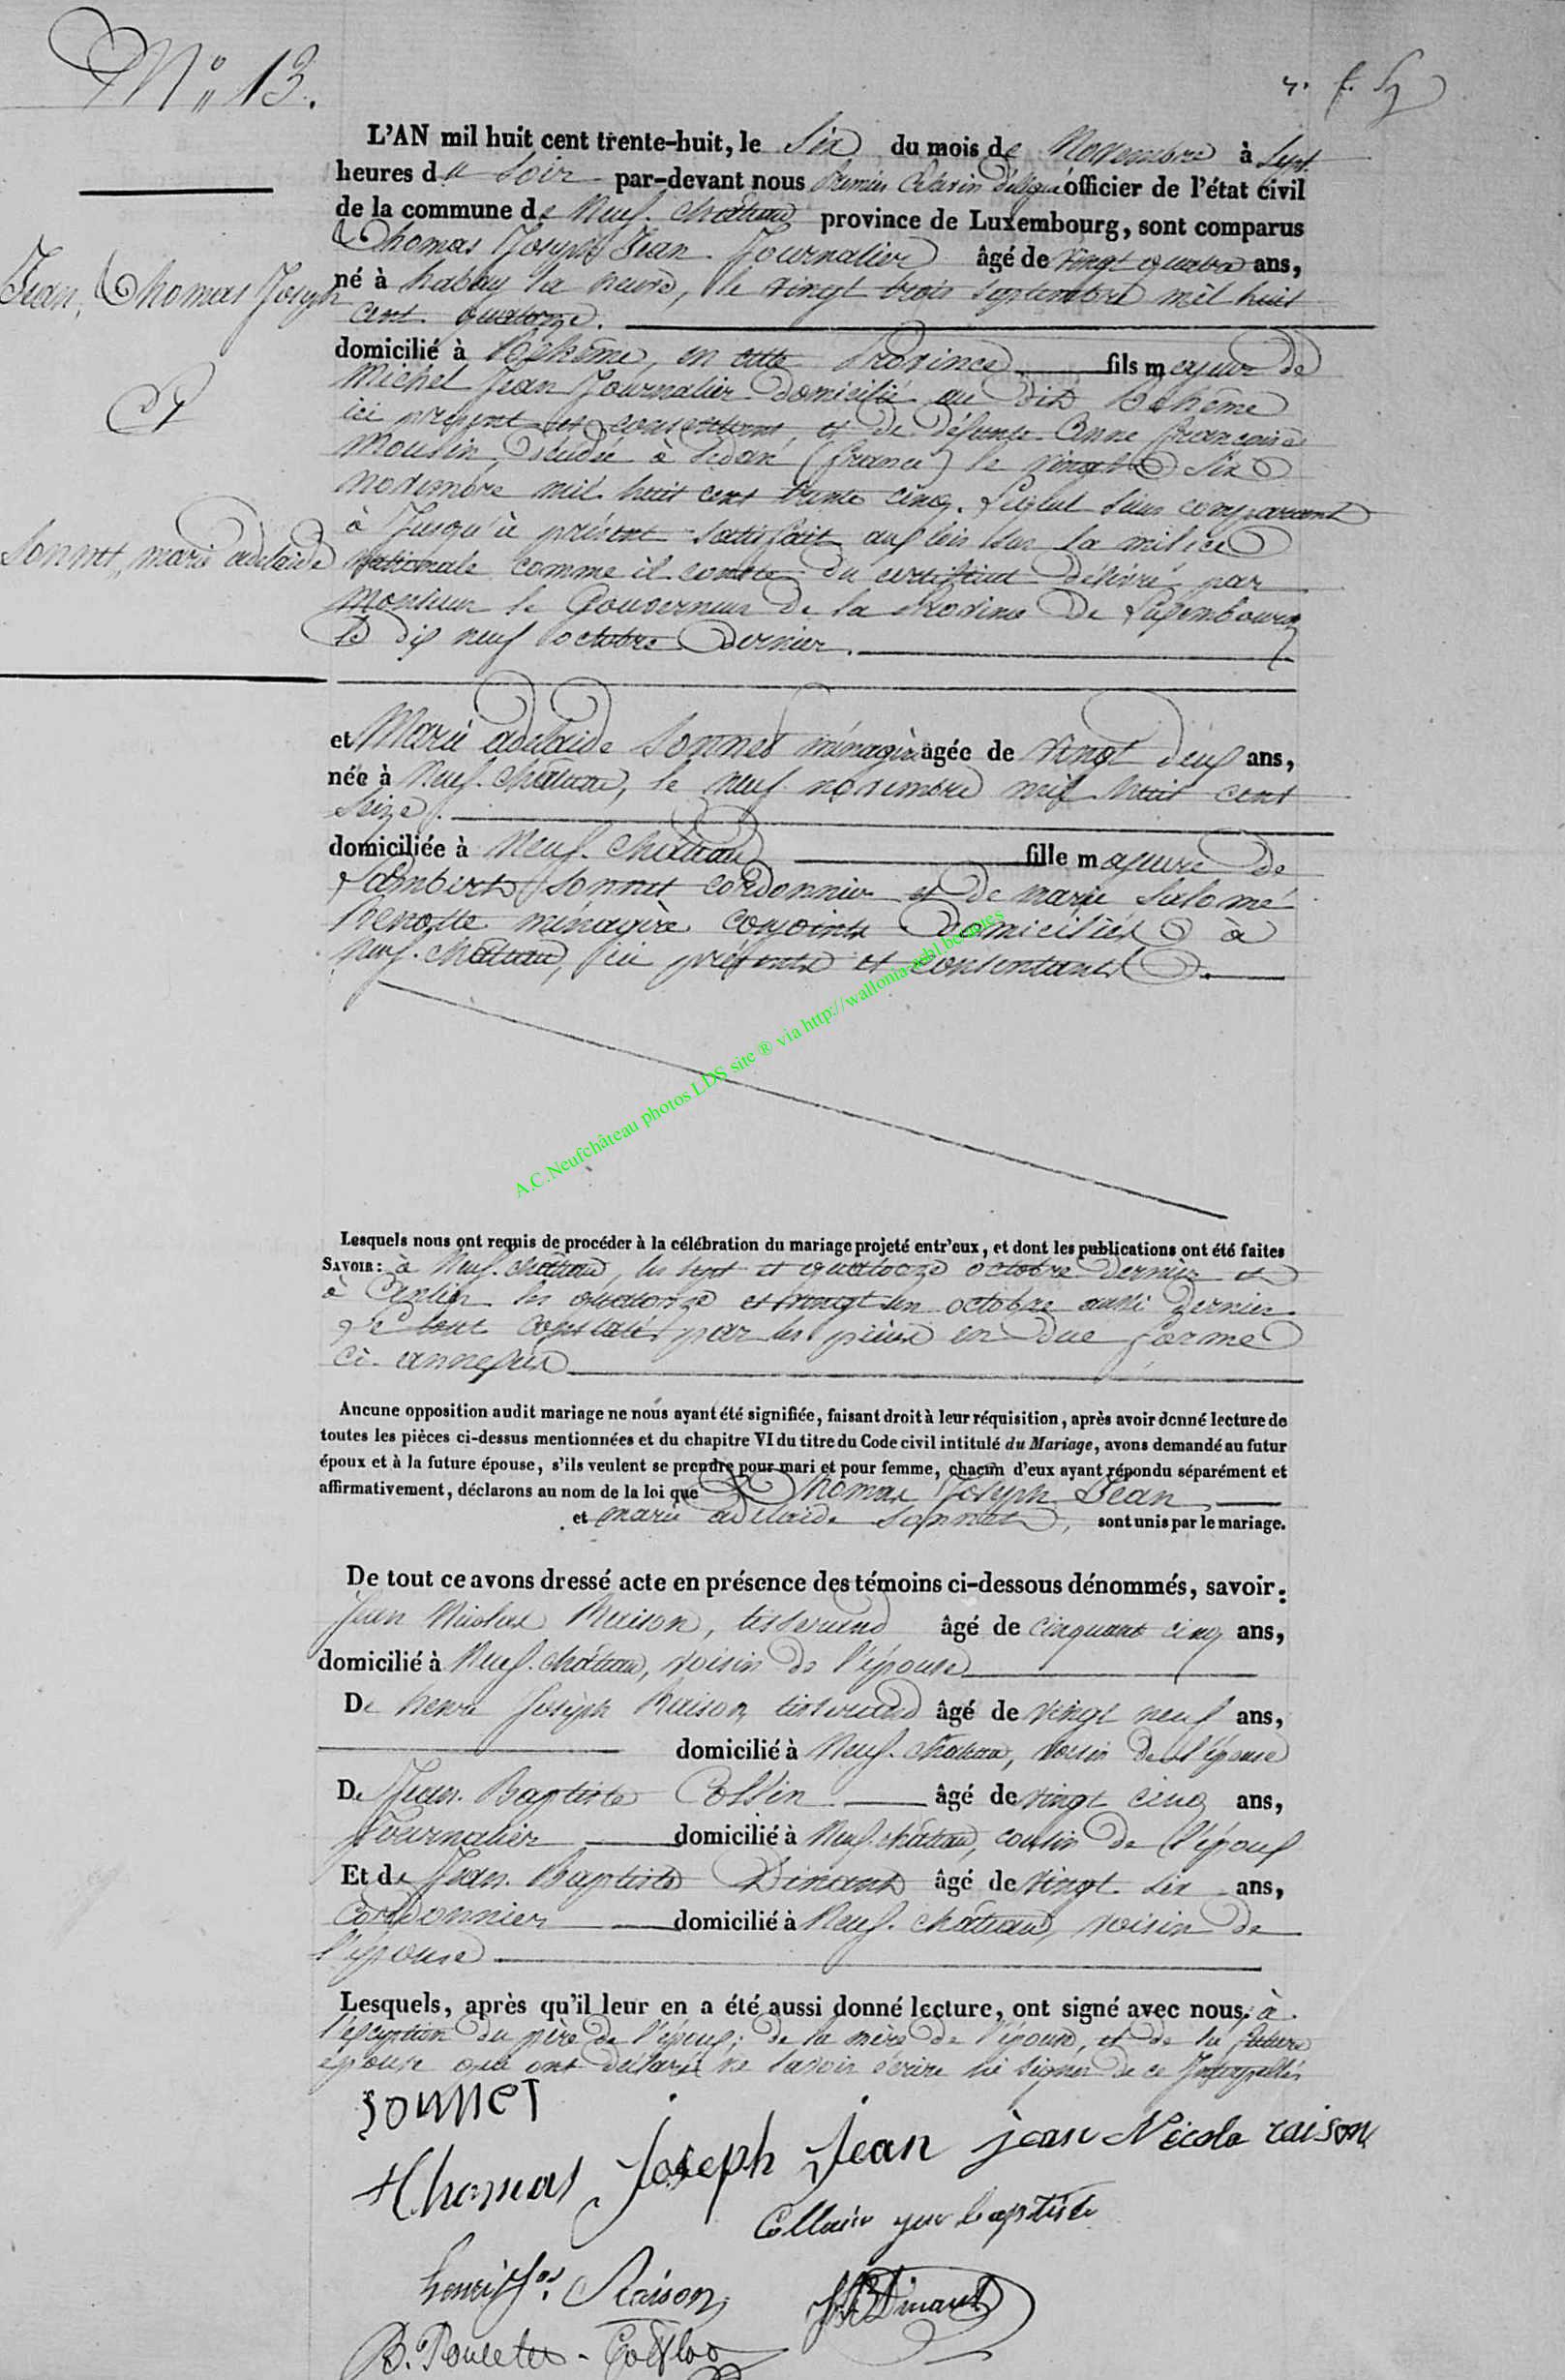 N° 13.
L'AN mil huit cent trente-huit, le Six du mois de Novembre à Sept
heures du Soir par-devant nous Premier Echevin délégué officier de l'état civil
de la commune de Neuf-château province de Luxembourg, sont comparus
Thomas Joseph Jean Journalier âgé de vingt quatre ans,
né à habay la neuve, le vingt trois septembre mil huit
cent quatorze.
domicilié à Bohême, en cette Province fils majeur de
Michel Jean Journalier domicilié au dit Bohême
ici présent et consentant, et de défunte Anne françoise
Moulin, décédée à Sedan (france) le vingt Six
novembre mil huit cent trente cinq. Lequel Sieur comparant
à Jusqu'à présent satisfait aux lois sur la milice
nationale comme il conste du certificat délivré par
Monsieur le Gouverneur de la Province de Luxembourg
le dix neuf octobre dernier.
Jean, Thomas Joseph
Et
Sonnet, marie adelaide
et Marie adelaide Sonnet ménagère agée de vingt deux ans,
née à Neuf-château, le neuf novembre mil huit cent
Seize.
domiciliée à Neuf-château fille majeure de
Lambert Sonnet cordonnier et de marie Salomé
ménagère conjoints domiciliés à
Neuf-château, ici présents et consentants.
A.C.Neufchâteau photos LDS site ® via http://wallonia-asbl.be
Lesquels nous ont requis de procéder à la célébration du mariage projeté entr'eux, et dont les publications ont été faites
SAVOIR: à Neuf-château, les sept et quatorze octobre dernier et
à les quatorze et vingt un octobre aussi dernier
Le tout constaté par les pièces en due forme
ci-annexées
Aucune opposition audit mariage ne nous ayant été signifiée, faisant droit à leur réquisition, après avoir donné lecture de
toutes les pièces ci-dessus mentionnées et du chapitre VI du titre du Code civil intitulé du Mariage, avons demandé au futur
époux et à la future épouse, s'ils veulent se prendre pour mari et pour femme, chacun d'eux ayant répondu séparément et
affirmativement, déclarons au nom de la loi que Thomas Joseph Jean
et marie adelaide Sonnet, sont unis par le mariage.
De tout ce avons dressé acte en présence des témoins ci-dessous dénommés, savoir:
Jean Nicolas Raison, tisserand âgé de cinquante cinq ans,
domicilié à Neuf-château, voisin de l'épouse
De henri Joseph Raison, tisserand âgé de vingt neuf ans,
domicilié à Neuf-château, voisin de l'épouse
De Jean-Baptiste Collin âgé de vingt cinq ans,
Journalier domicilié à Neuf-château, cousin de l'époux
Et de Jean-Baptiste Dinant âgé de vingt six ans,
Cordonnier domicilié à Neuf-château, voisin de
l'épouse
Lesquels, après qu'il leur en a été aussi donné lecture, ont signé avec nous, à
l'exception du père de l'époux; de la mère de l'épouse, et de la future
épouse qui ont déclaré ne savoir écrire ni signer de ce Interpellés
sonnet
Thomas Joseph Jean jean Nicola raison
Collain jean baptiste
henri Jos. Raison
JB Dinant